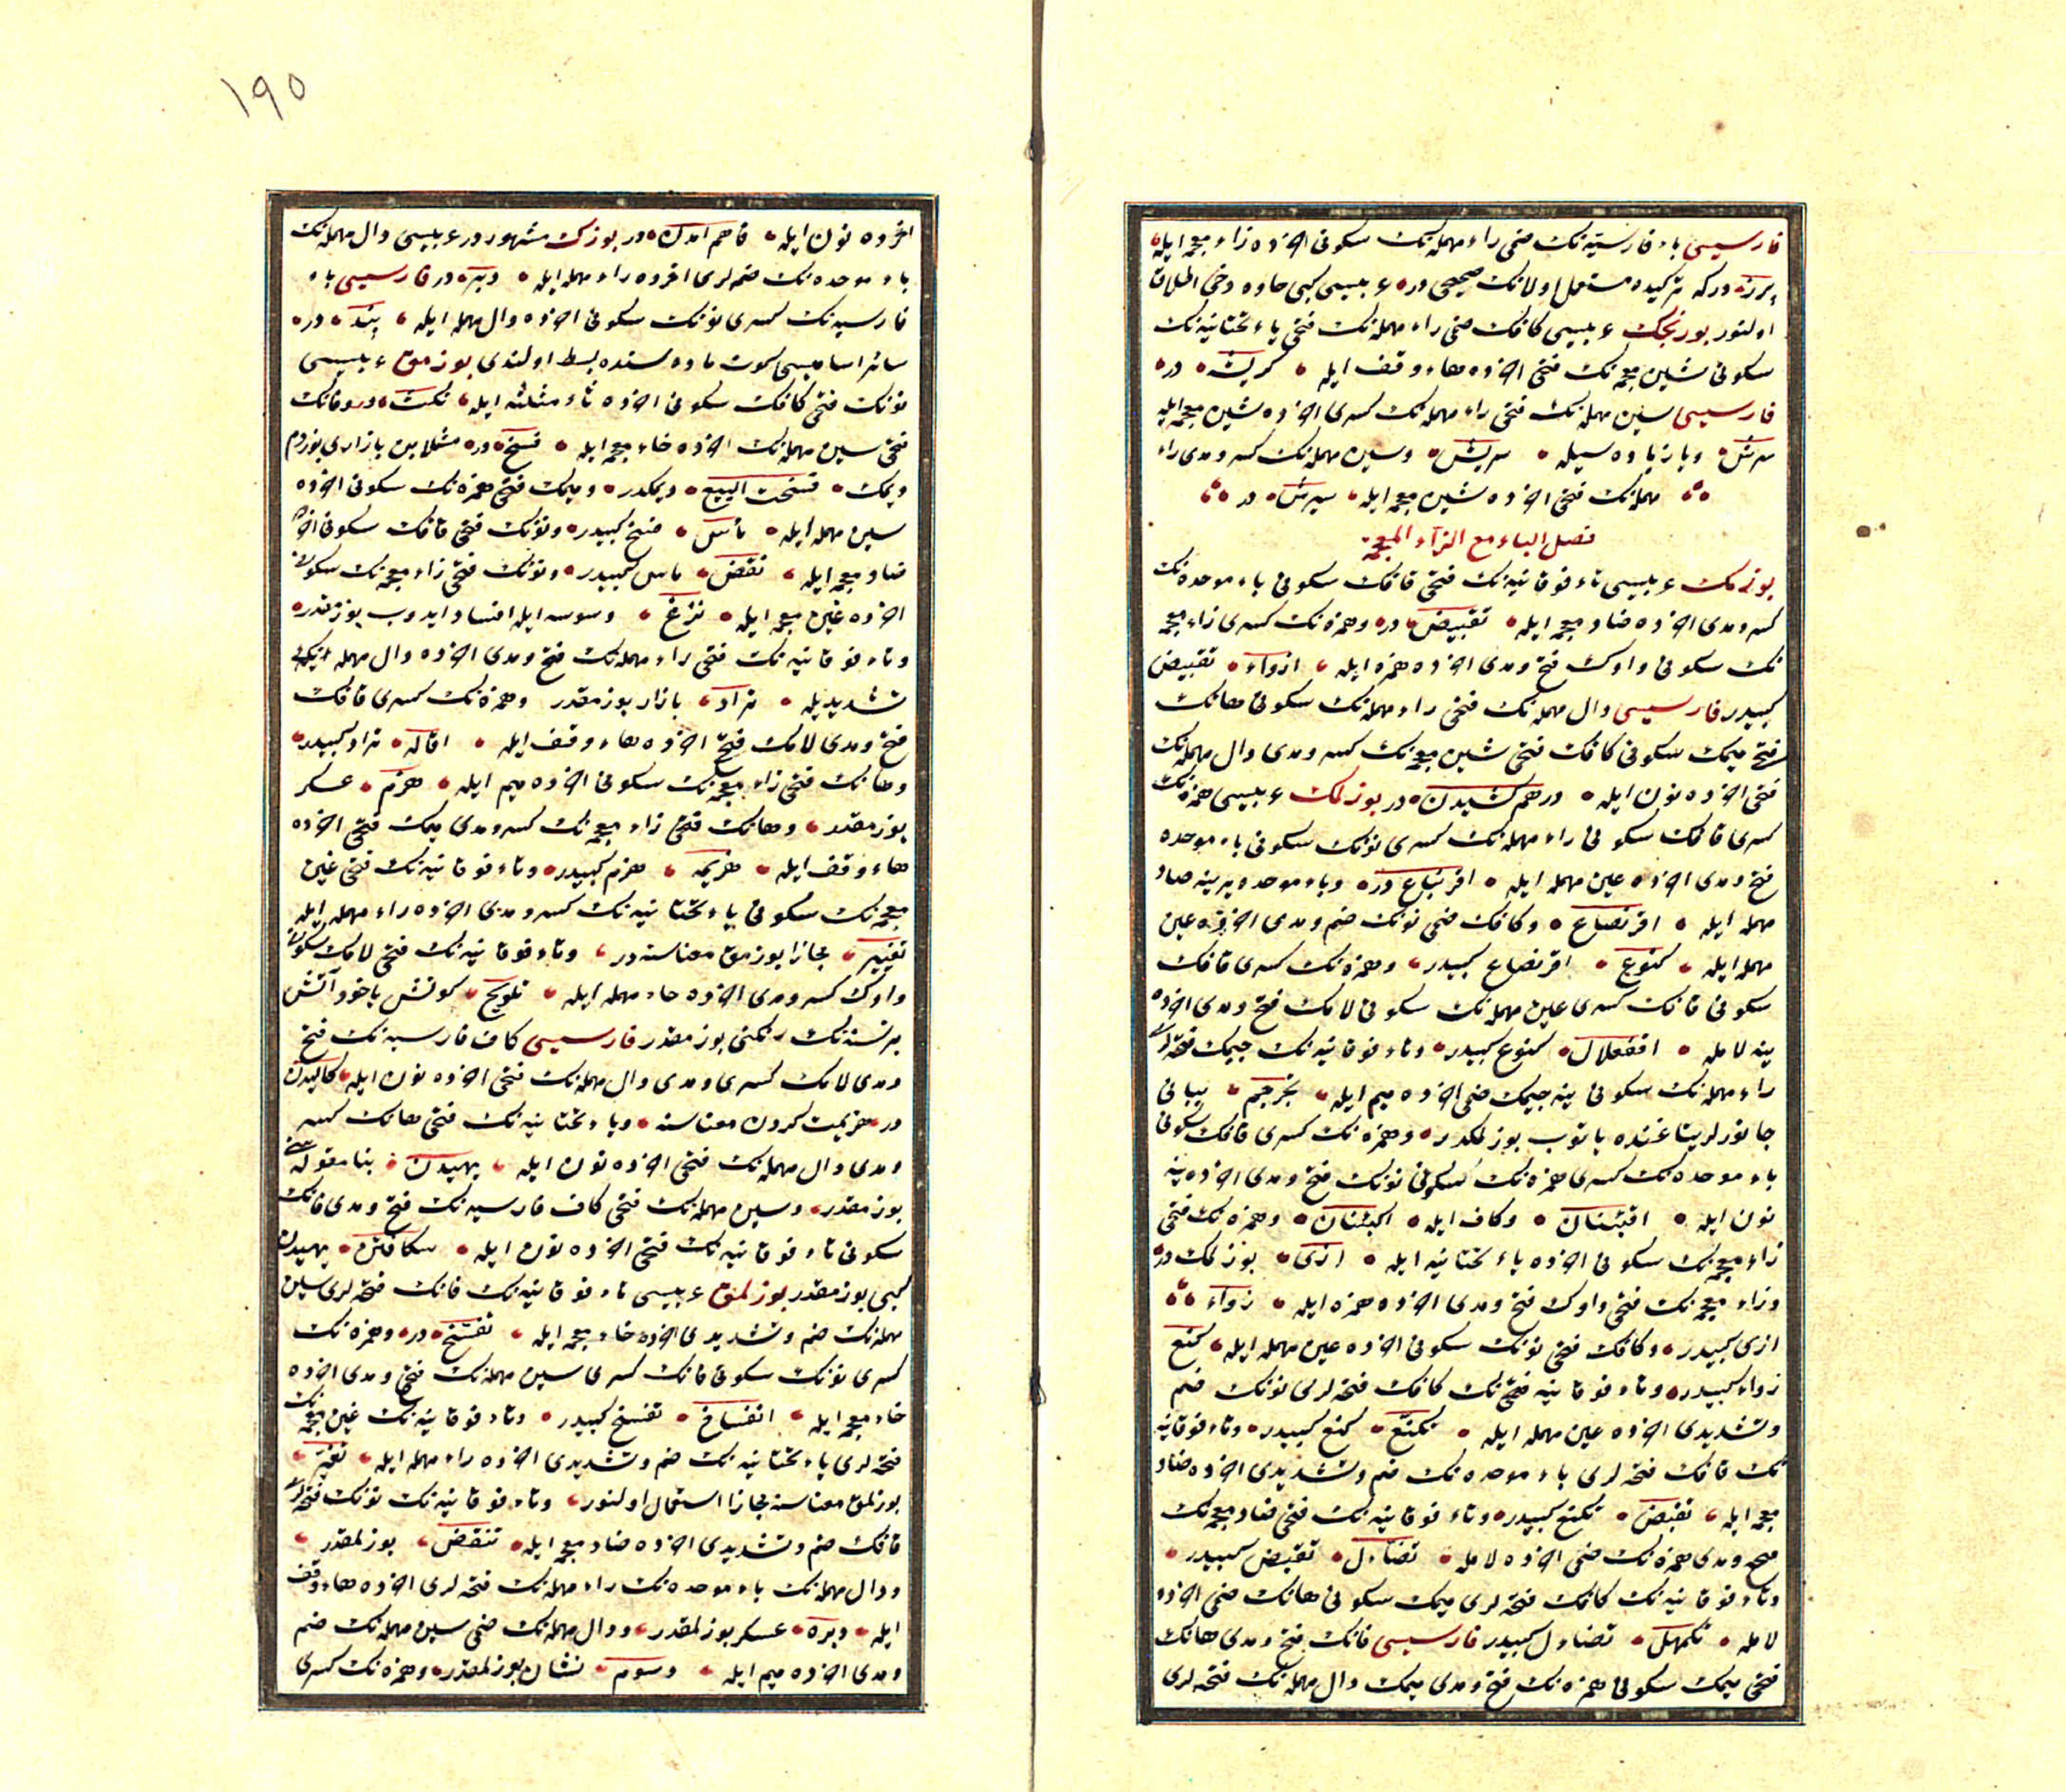 فارسیسی باء فارسیّه‌نك ضمی راء مهمله‌نك سكونی اخرده زاء معجمه ایله
پرز در كه تركیده مستعمل اولانك صحیحی در عربیسی كبی حاوه دخی اطلاق
اولنور بورنجك عربیسی كافك ضمی راء مهمله‌نك فتحی یاء تحتانیه‌نك
سكونی شین معجمه‌نك فتحی اخرده هاء وقف ایله كریشه در
فارسیسی سین مهمله‌نك فتحی راء مهمله‌نك كسری اخرده شین معجمه ایله
سرش و یا زیاده سیله سریش و سین مهمله‌نك كسر و مدی راء
مهمله‌نك فتحی اخرده شین معجمه ایله سیرش در
فصل الباء مع الزاء المعجمه
بوزمك عربیسی تاء فوقانیه‌نك فتحی قافك سكونی باء موحده‌نك
كسر و مدی اخرده ضاد معجمه ایله تقبیض در و همزه‌نك كسری زاء معجمه
نك سكونی واوك فتح و مدی اخرده همزه ایله ازواء تقبیض
كبیدر فارسیسی دال مهمله‌نك فتحی راء مهمله‌نك سكونی هانك
فتحی میمك سكونی كافك فتحی شین معجمه‌نك كسر و مدی دال مهمله‌نك
فتحی اخرده نون ایله درهم كشیدن در بوزلمك عربیسی همزه‌نك
كسری قافك سكونی راء مهمله‌نك كسری نونك سكونی باء موحده
فتح و مدی اخرده عین مهمله ایله اقرنباع در و باء موحده یرینه صاد
مهمله ایله اقرنصاع و كافك ضمی نونك ضم و مدی اخرده عین
مهمله ایله كنوع اقرنصاع كبیدر و همزه‌نك كسری قافك
سكونی فانك كسری عین مهمله‌نك سكونی لامك فتح و مدی اخرده
ینه لامله اقفعلال كنوع كبیدر و تاء فوقانیه‌نك جیمك فتحه‌لری
راء مهمله‌نك سكونی ینه جیمك ضمی اخرده میم ایله تجرجم یبانی
جانورلر یتاغنده یاتوب بوزلمكدر و همزه‌نك كسری قافك سكونی
باء موحده‌نك كسری همزه‌نك سكونی نونك فتح و مدی اخرده ینه
نون ایله اقبئنان و كاف ایله اكبئنان و همزه‌نك فتحی
زاء معجمه‌نك سكونی اخرده یاء تحتانیه ایله ازی بوزلمك در
و زاء معجمه‌نك فتحی واوك فتح و مدی اخرده همزه ایله زواء
ازی كبیدر و كافك فتحی نونك سكونی اخرده عین مهمله ایله كنع
زواء كبیدر و تاء فوقانیه فتحی‌نك كافك فتحه‌لری نونك ضم
و تشدیدی اخرده عین مهمله ایله تكنع كنع كبیدر و تاء فوقانیه
نك قافك فتحه‌لری باء موحده‌نك ضم و تشدیدی اخرده ضاد
معجمه ایله تقبض تكنع كبیدر و تاء فوقانیه‌نك فتحی ضاد معجمه‌نك
فتح و مدی همزه‌نك ضمی اخرده لامله تضاءل تقبض كبیدر
و تاء فوقانیه‌نك كافك فتحه‌لری میمك سكونی هانك ضمی اخرده
لامله تكمهل تضاءل كبیدر فارسیسی فانك فتح و مدی هانك
فتحی میمك سكونی همزه‌نك فتح و مدی میمك دال مهمله‌نك فتحه‌لری
١٩٥
اخرده نون ایله فاهم آمدن در بوزك مشهوردر عربیسی دال مهمله‌نك
باء موحده‌نك ضمه‌لری اخرده راء مهمله ایله دبر در فارسیسی باء
فارسیه‌نك كسری نونك سكونی اخرده دال مهمله ایله پند در
سائر اسامیسی كوت ماده‌سنده بسط اولندی بوزمق عربیسی
نونك فتحی كافك سكونی اخرده ثاء مثلثه ایله نكث در و فانك
فتحی سین مهمله‌نك اخرده خاء معجمه ایله فسخ در مثلا بن بازاری بوزدم
دیمك فسخت البیع دیمكدر و میمك فتحی همزه‌نك سكونی اخرده
سین مهمله ایله مأس فسخ كبیدر و نونك فتحی قافك سكونی اخرده
ضاد معجمه ایله نقض مأس كبیدر و نونك فتحی زاء معجمه‌نك سكونی
اخرده غین معجمه ایله نزغ وسوسه ایله افساد ایدوب بوزمقدر
و تاء فوقانیه‌نك فتحی راء مهمله‌نك فتح و مدی اخرده دال مهمله‌نك
تشدیدیله تراد بازار بوزمقدر و همزه‌نك كسری قافك
فتح و مدی لامك فتحی اخرده هاء وقف ایله اقاله تراد كبیدر
و هانك فتحی زاء معجمه‌نك سكونی اخرده میم ایله هزم عسكر
بوزمقدر و هانك فتحی زاء معجمه‌نك كسر و مدی میمك فتحی اخرده
هاء وقف ایله هزیمه هزم كبیدر و تاء فوقانیه‌نك فتحی غین
معجمه‌نك سكونی یاء تحتانیه‌نك كسر و مدی اخرده راء مهمله ایله
تغییر مجازا بوزمق معناسنه در و تاء فوقانیه‌نك فتحی لامك سكونی
واوك كسر و مدی اخرده حاء مهمله ایله تلویح كونش یاخود آتش
برنسنه‌نك رنكنی بوزمقدر فارسیسی كاف فارسیه‌نك فتح
و مدی لامك كسری و مدی دال مهمله‌نك فتحی اخرده نون ایله كالیدن
در هزیمت كردن معناسنه و یاء تحتانیه‌نك فتحی هانك كسر
و مدی دال مهمله‌نك فتحی اخرده نون ایله یهیدن بنا مقوله‌سنی
بوزمقدر و سین مهمله‌نك فتحی كاف فارسیه‌نك فتح و مدی فانك
سكونی تاء فوقانیه‌نك فتحی اخرده نون ایله سكافتن یهیدن
كبی بوزمقدر بوزلمق عربیسی تاء فوقانیه‌نك فانك فتحه‌لری سین
مهمله‌نك ضم و تشدیدی اخرده خاء معجمه ایله تفسخ در و همزه‌نك
كسری نونك سكونی فانك كسری سین مهمله‌نك فتح و مدی اخرده
خاء معجمه ایله انفساخ تفسخ كبیدر و تاء فوقانیه‌نك غین معجمه‌نك
فتحه‌لری یاء تحتانیه‌نك ضم و تشدیدی اخرده راء مهمله ایله تغیر
بوزلمق معناسنه مجازا استعمال اولنور و تاء فوقانیه‌نك نونك فتحه‌لری
قافك ضم و تشدیدی اخرده ضاد معجمه ایله تنقض بوزلمقدر
و دال مهمله‌نك باء موحده‌نك راء مهمله‌نك فتحه‌لری اخرده هاء وقف
ایله دبره عسكر بوزلمقدر و دال مهمله‌نك ضمی سین مهمله‌نك ضم
و مدی اخرده میم ایله دسوم نشان بوزلمقدر و همزه‌نك كسری